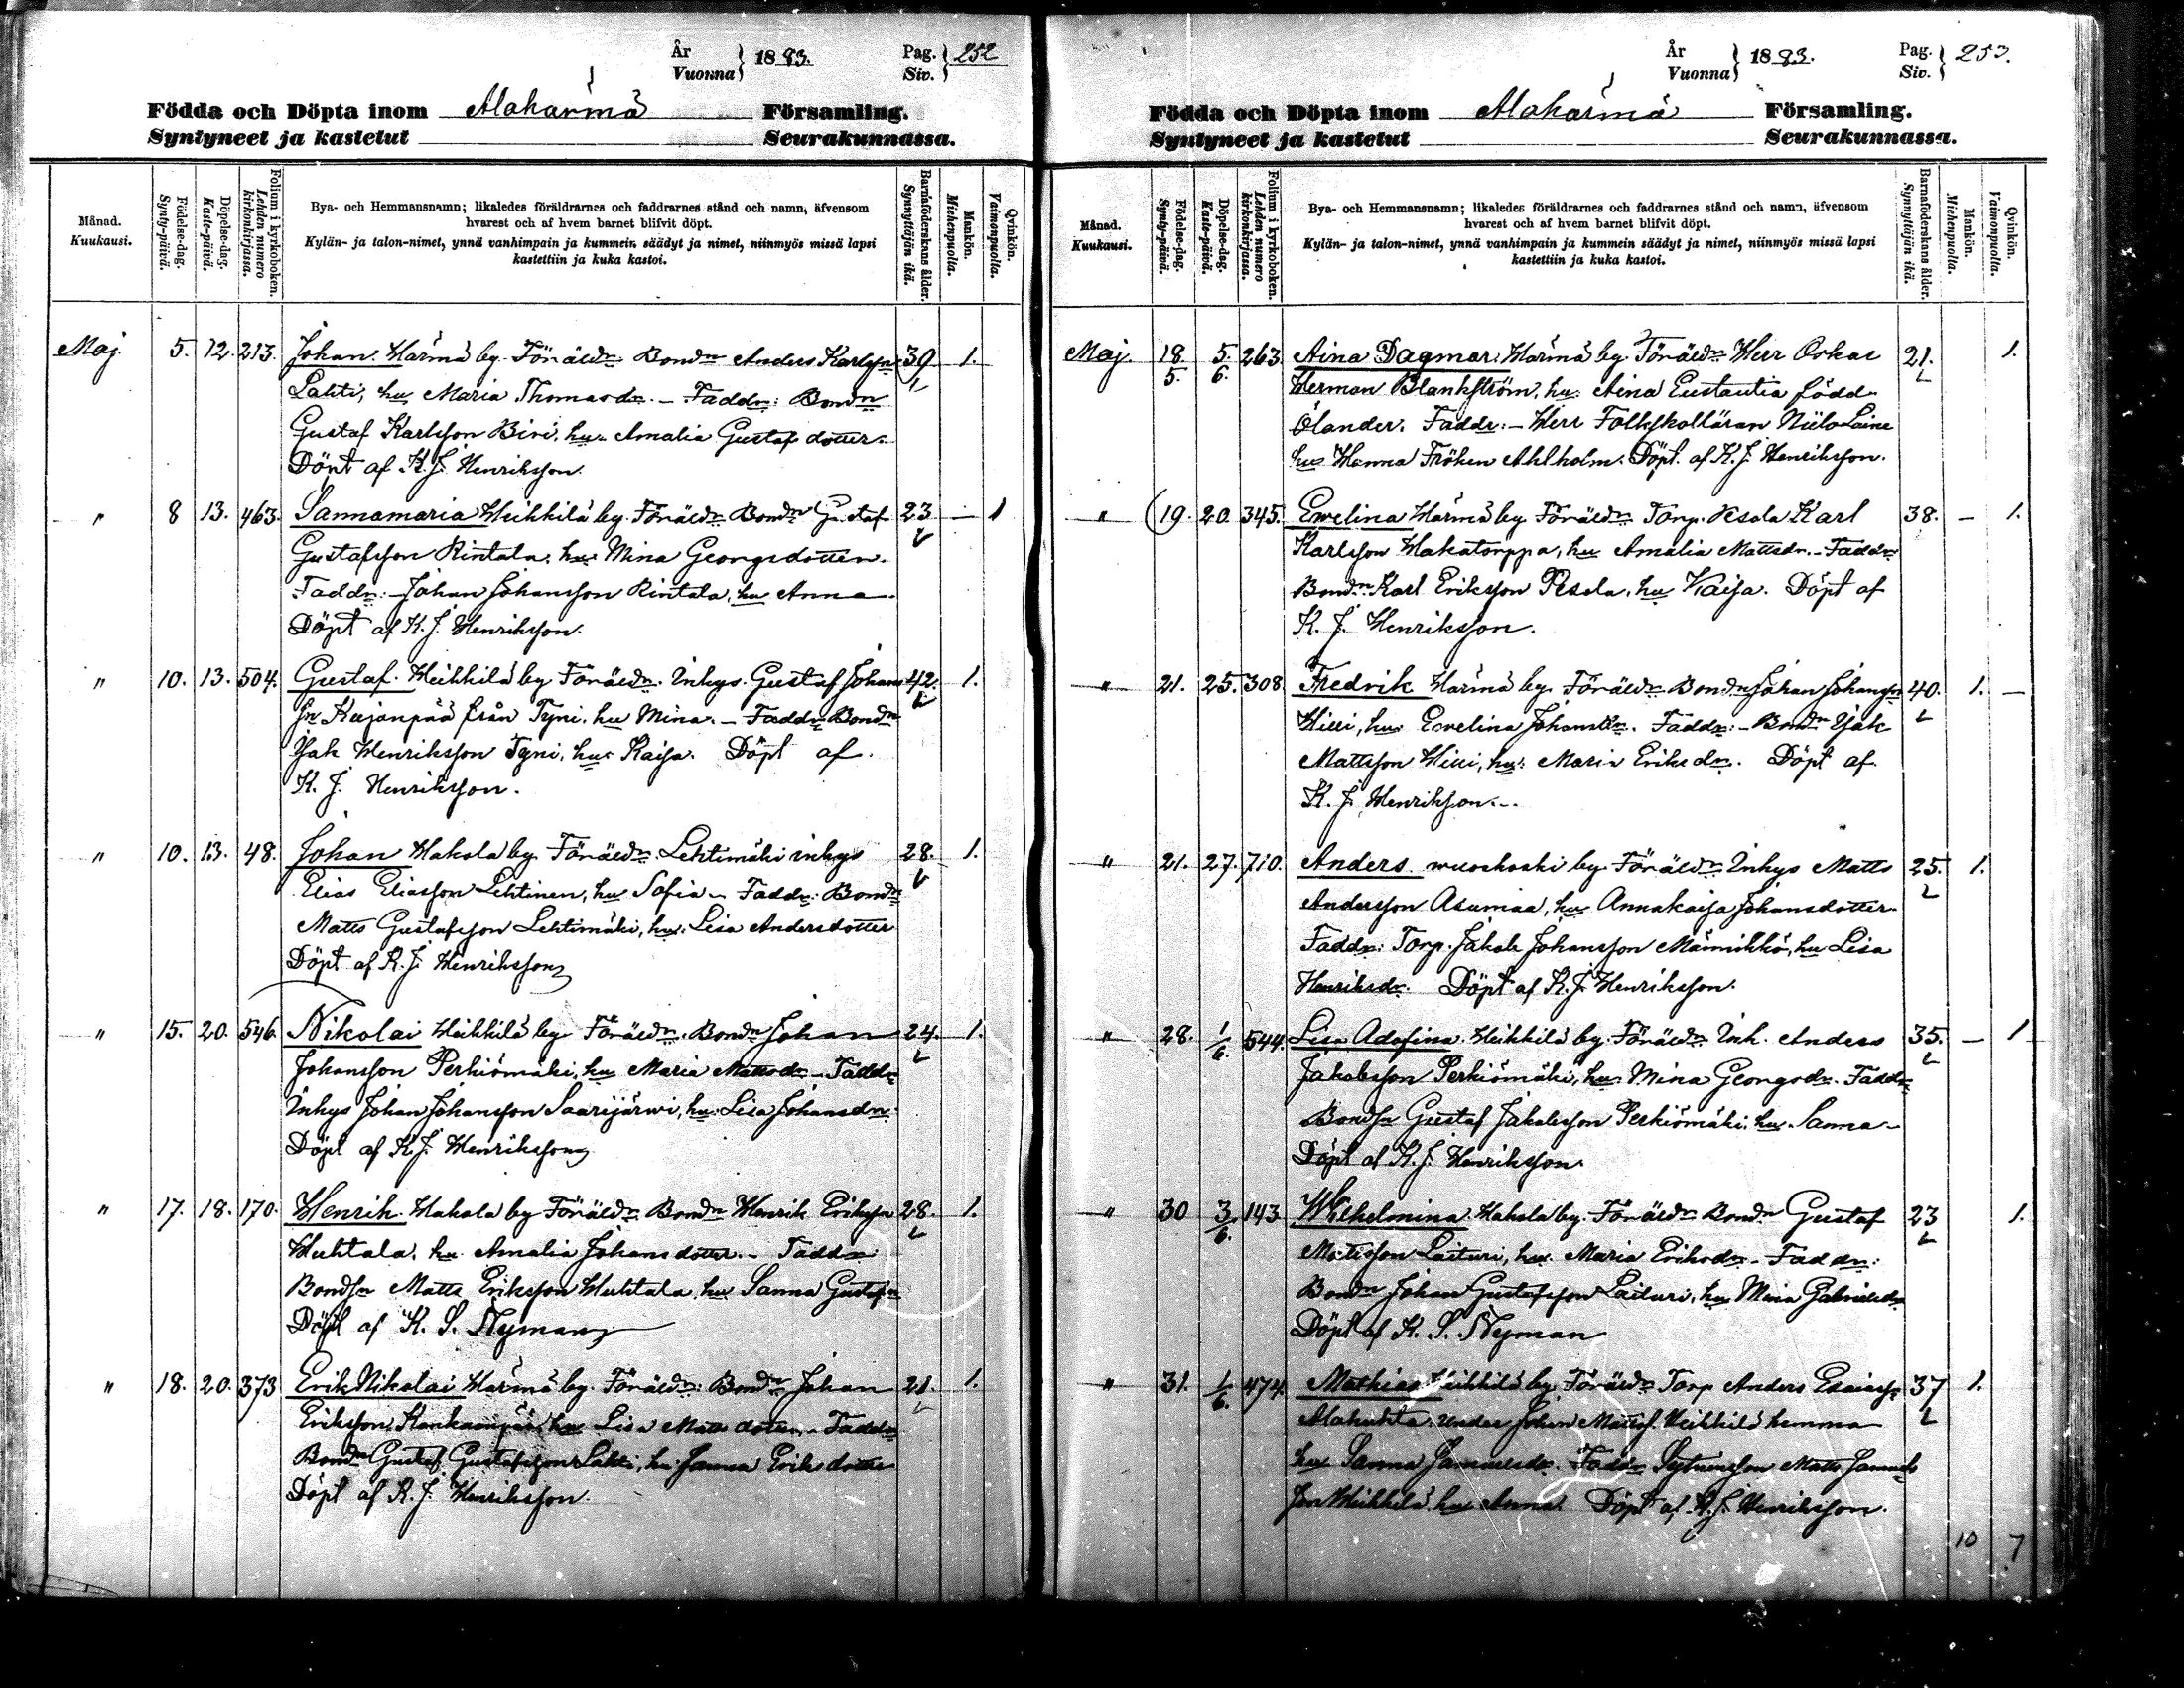 År
Vuonna } 1883.
Pag.
Siv. } 252
Födda och Döpta inom Alahärmä Församling.
Syntyneet ja kastetut Seurakunnassa.
Månad.
Kuukausi.
Födelse-dag.
Synty-päivä.
Döpelse-dag.
Kaste-päivä.
Folium i kyrkoboken.
Lehden numero
kirkonkirjassa.
Bya- och Hemmansnamn; likaledes föräldrarnes och faddrarnes stånd och namn, äfvensom
hvarest och af hvem barnet blifvit döpt.
Kylän- ja talon-nimet, ynnä vanhimpain ja kummein säädyt ja nimet, niinmyös missä lapsi
kastettiin ja kuka kastoi.
Barnaföderskans ålder.
Synnyttäjän ikä.
Mankön.
Miehenpuolta.
Qvinkön.
Vaimonpuolta.
Maj. 5. 12. 213. Johan. Härmä by. Föräldr. Bondn Anders Karlssn 39 1.
Lahti, hu Maria Thomasdr. – Faddr: Bondn
Gustaf Karlsson Biri, hu. Amalia Gustafsdotter.
Döpt af K. J. Henriksson.
" 8 13. 463. Sannamaria Heikkilä by. Föräldr. Bondn Gustaf 23 – 1
Gustafsson Rintala, hu. Mina Georgsdotter.
Faddr: – Johan Johansson Rintala, hu Anna.
Döpt af K. J. Henriksson.
" 10. 13. 504. Gustaf. Heikkilä by Föräldr. Inhys. Gustaf Johans 42. 1.
sn Kujanpää från Tyni, hu Mina. – Faddr Bondn
Isak Henriksson Tyni, hu. Kaisa. Döpt af
K. J. Henriksson.
" 10. 13. 48. Johan Hakola by. Föräldr. Lehtimäki inhys 28. 1.
Elias Eliasson Lehtinen, hu Sofia – Faddr: Bondn
Matts Gustafsson Lehtimäki, hu. Lisa Andersdotter
Döpt af K. J. Henriksson
" 15. 20. 546. Nikolai Heikkilä by Föräldr. Bondn Johan 24. 1.
Johansson Perkiömäki, hu Maria Mattsdr – Faddr
Inhys Johan Johansson Saarijärwi, hu. Lisa Johansdr.
Döpt af K. J. Henriksson
" 17. 18. 170. Henrik. Hakola by Föräldr. Bondn Henrik Erikssn 28. 1.
Huhtala, hu. Amalia Johansdotter. – Faddr
Bondsn Matts Eriksson Huhtala, hu Sanna
Döpt af K. S. Nyman
" 18. 20. 373 Erik Nikolai Härmä by. Föräldr: Bondn Johan 21. 1.
Eriksson Kankaanpää hu Lisa Matts dotter. – Faddr
Bondn Gustaf Gustafsson Lahti, hu Sanna Eriksdotter
Döpt af K. J. Henriksson.
År
Vuonna } 1883.
Pag.
Siv. } 253.
Födda och Döpta inom Alahärmä Församling.
Syntyneet ja kastetut Seurakunnassa.
Månad.
Kuukausi.
Födelse-dag.
Synty-päivä.
Döpelse-dag.
Kaste-päivä.
Folium i kyrkoboken.
Lehden numero
kirkonkirjassa.
Bya- och Hemmansnamn; likaledes föräldrarnes och faddrarnes stånd och namn, äfvensom
hvarest och af hvem barnet blifvit döpt.
Kylän- ja talon-nimet, ynnä vanhimpain ja kummein säädyt ja nimet, niinmyös missä lapsi
kastettiin ja kuka kastoi.
Barnaföderskans ålder.
Synnyttäjän ikä.
Mankön.
Miehenpuolta.
Qvinkön.
Vaimonpuolta.
Maj. 18/5. 5/6. 263. Aina Dagmar. Härmä by Föräldr Herr Oskar 21. 1.
Herman Blankström, hu. Aina Eustautia född
Ölander. Faddr: – Herr Folkskolläran Niilo Laine
hu Hanna Fröken Ahlholm. Döpt. af K. J. Henriksson.
" (19. 20. 345. Ewelina Härmä by Föräldr Torp. Pesola Karl 38. – 1.
Karlsson Hakatorppa, hu Amalia Mattsdr. – Faddr
Bondn Karl Eriksson Pesola, hu Kaisa. Döpt af
K. J. Henriksson.
" 21. 25. 308 Fredrik Härmä by. Föräldr Bondn Johan Johanssn 40. 1. –
Hieri, hu. Ewelina Johansdr. Faddr: – Bondn Isak
Mattsson Hieri, hu. Maria Eriksdr. Döpt af
K. J. Henriksson.
" 21. 27. 710. Anders wuoskoski by. Föräldr Inhys Matts 25. 1.
Andersson Asumaa, hu Annakaisa Johansdotter
Faddr: Torp. Jakob Johansson Männikkö, hu Lisa
Henriksdr. Döpt af K. J. Henriksson.
" 28. 1/6. 544. Lisa Adofina. Heikkilä by. Föräldr Inh. Anders 35. – 1
Jakobsson Perkiömäki, hu. Mina Georgsdr. Faddr
Bondsn Gustaf Jakobsson Perkiömäki, hu. Sanna –
Döpt af K. J. Henriksson.
" 30 3/6. 143 Wilhelmina Hakola by. Föräldr Bondn Gustaf 23 1.
Mattsson Laituri, hu. Maria Eriksdr. – Faddr:
Bondn Johan Gustafsson Laituri, hu Mina Gabrielsdr
Döpt af K. S. Nyman
" 31. 1/6. 474. Mathias Heikkilä by Föräldr Torp Anders Esaiassn 37 1.
Alahuhta under Johan Mattss. Heikkilä hemma
hu Sanna Samuelsdr. Faddr Matts Samuels
son Heikkilä hu Anna. Döpt af K. J. Henriksson.
10 7